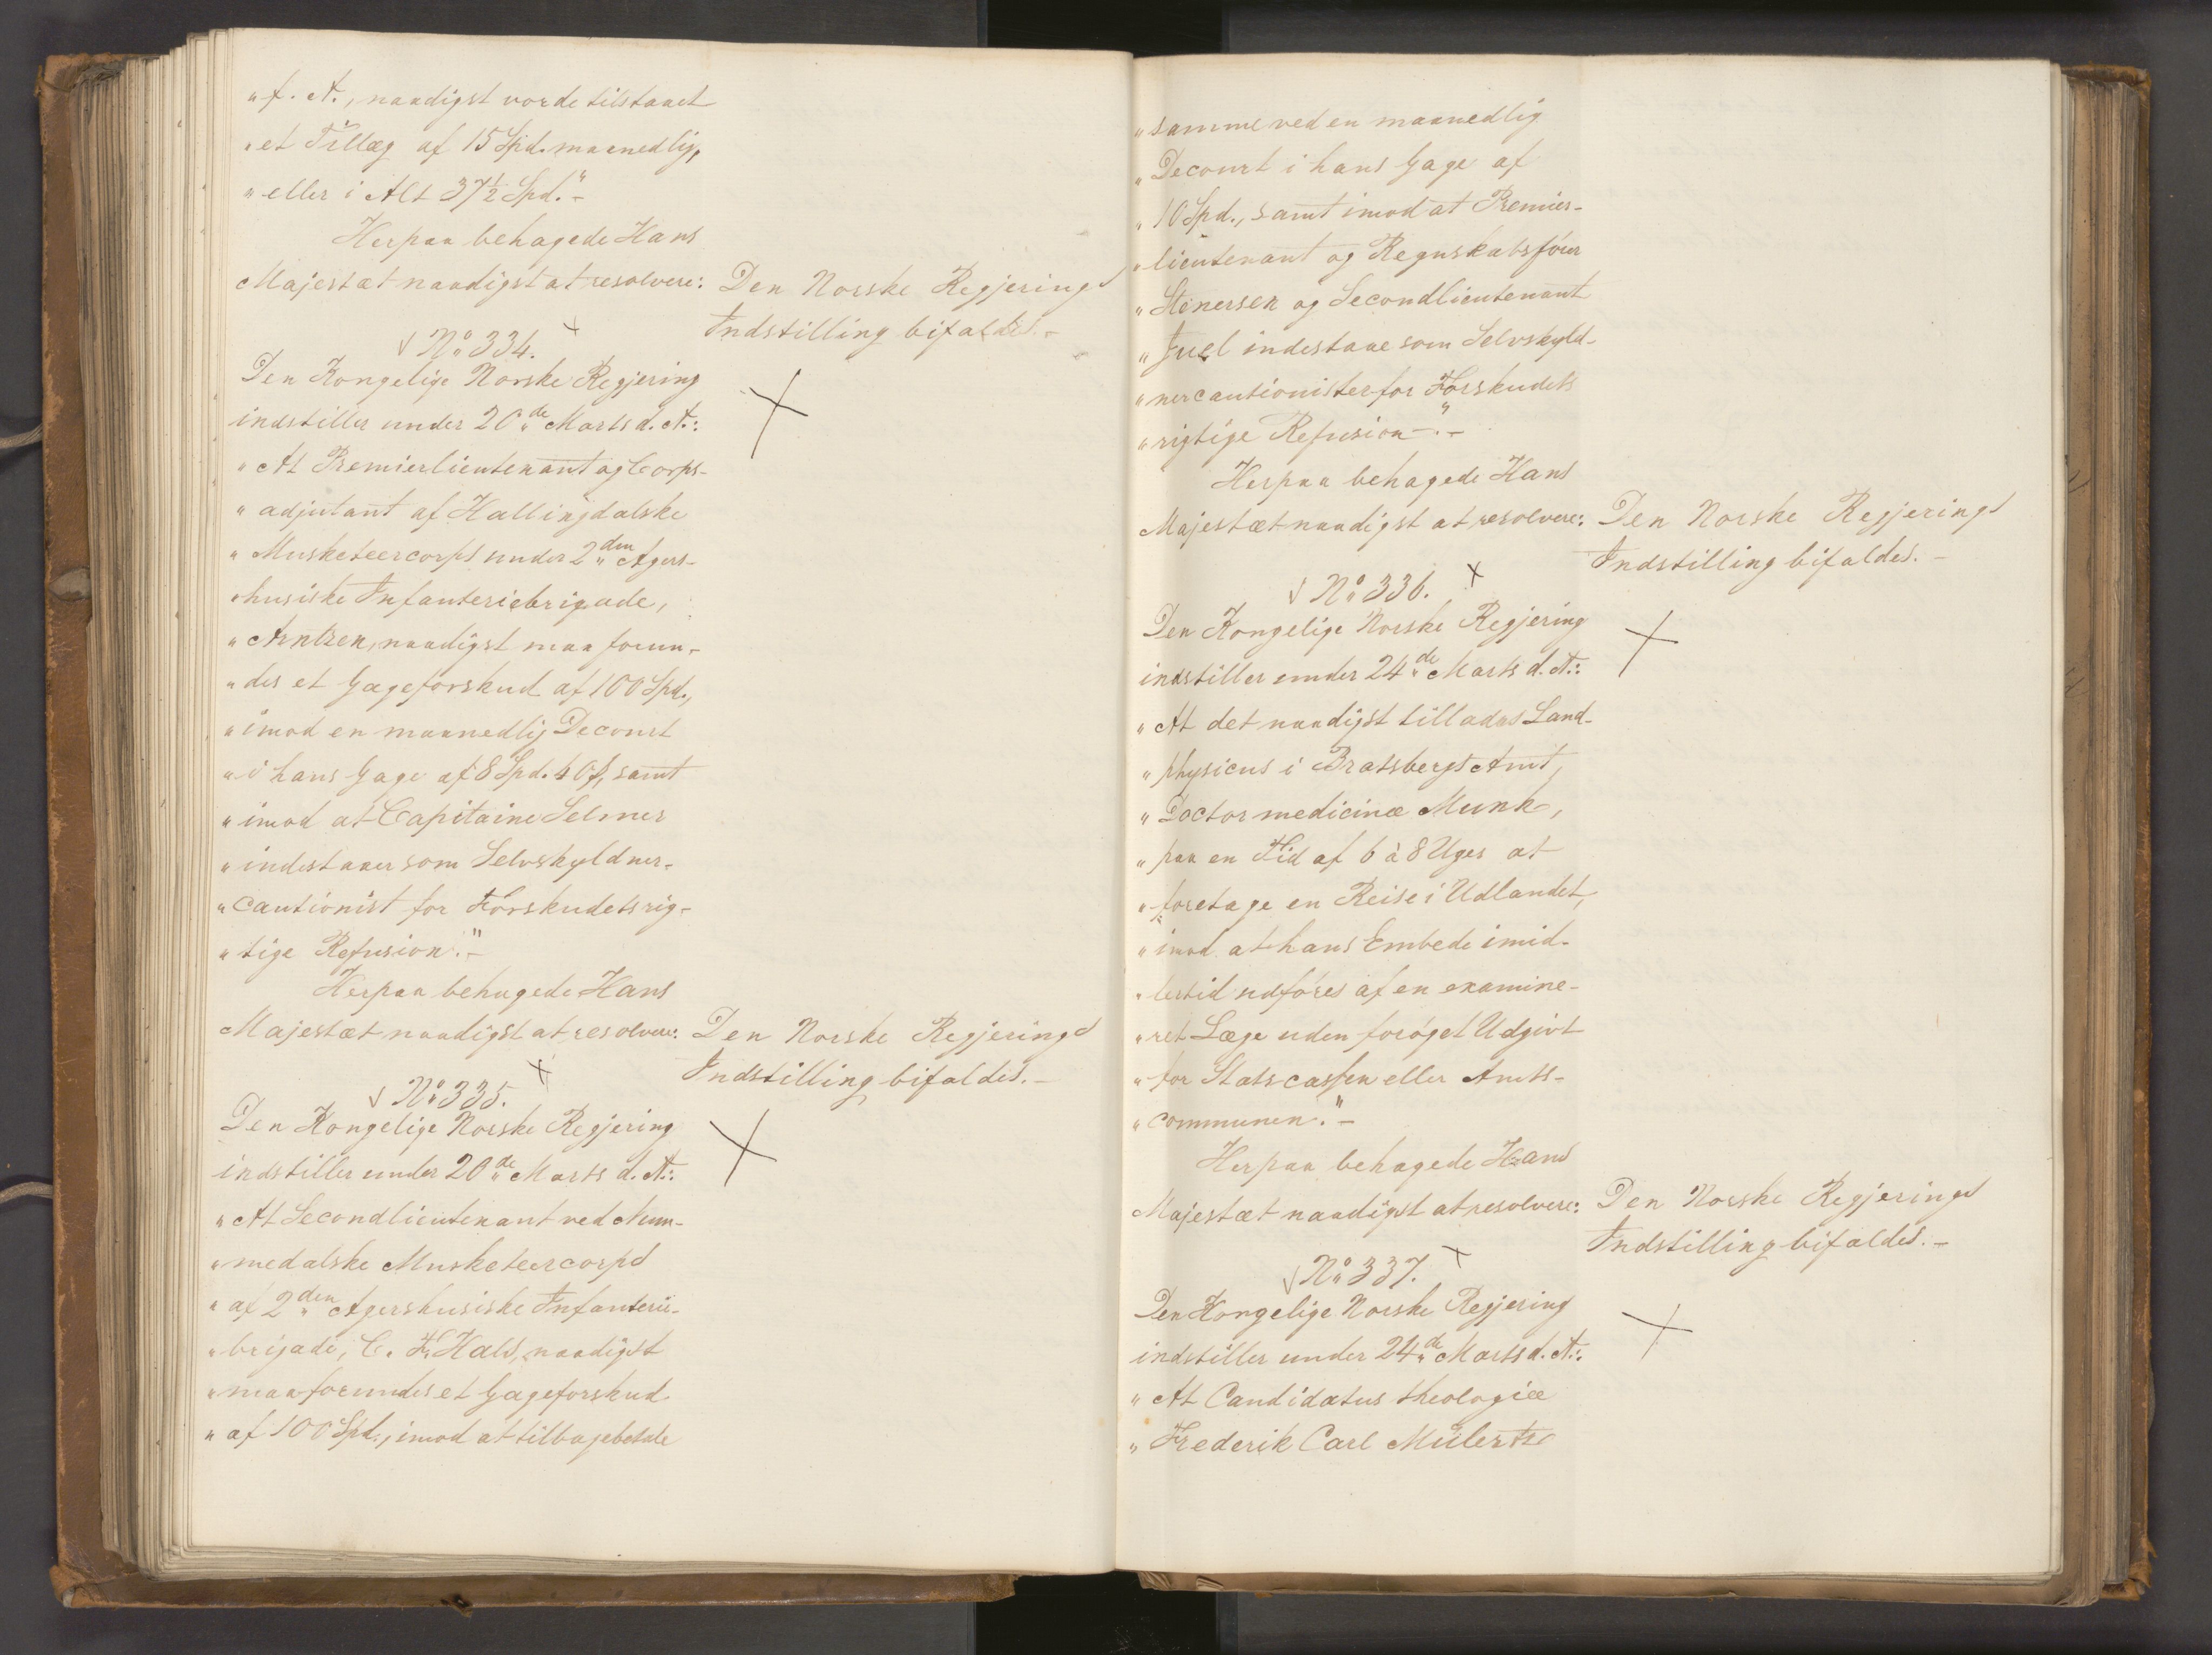 „f. A., naadigst vorde tilstaaet
„et Tillæg af 15 Spd. maanedlig,
„eller i Alt 37½ Spd."-
Herpaa behagede Hans
Majestæt naadigst at resolvere: Den Norske Regjerings
Indstilling bifaldes.-
√ No 334. +
Den Kongelige Norske Regjering
indstiller under 20de Marts d. A.:
„At Premierlieutenant og Corps-
„adjutant af Hallingdalske
„Musketeercorps under 2den Agers-
„husiske Infanteriebrigade,
„Arntzen, naadigst maa forun-
„des et Gageforskud af 100 Spd.,
„imod en maanedlig Decourt
„i hans Gage af 8 Spd. 40 ß, samt
„imod at Capitaine Selmer
„indestaaer som Selvskyldner-
„cautionist for Forskudets rig-
„tige Refusion."-
Herpaa behagede Hans
Majestæt naadigst at resolvere: Den Norske Regjerings
Indstilling bifaldes.-
√ No 335. +
Den Kongelige Norske Regjering
indstiller under 20de Marts d. A.:
„At Secondlieutenant ved Num-
„medalske Musketeercorps
„af 2den Agershusiske Infanterie-
„brigade, C. F. Hals, naadigst
„maa forundes et Gageforskud
„af 100 Spd., imod at tilbagebetale
„samme ved en maanedlig
„Decourt i hans Gage af
„10 Spd., samt imod at Premier-
„lieutenant og Regnskabsfører
„Stenersen og Secondlieutenant
„Juel indestaae som Selvskyld-
„nercautionister for Forskudets
„rigtige Refusion."-
Herpaa behagede Hans
Majestæt naadigst at resolvere: Den Norske Regjerings
Indstilling bifaldes.-
√ No 336. +
Den Kongelige Norske Regjering
indstiller under 24de Marts d. A.:
„At det naadigst tillades Land-
„physicus i Bratsbergs Amt,
„Doctor medicinæ Munk,
„paa en Tid af 6 à 8 Uger at
„foretage en Reise i Udlandet,
„imod at hans Embede imid-
„lertid udføres af en examine-
„ret Læge uden forøget Udgivt
„for Statscassen eller Amts-
„communen."-
Herpaa behagede Hans
Majestæt naadigst at resolvere: Den Norske Regjerings
Indstilling bifaldes.-
√ No 337. +
Den Kongelige Norske Regjering
indstiller under 24de Marts d. A.:
„At Candidatus theologiæ
„Frederik Carl Mülertz